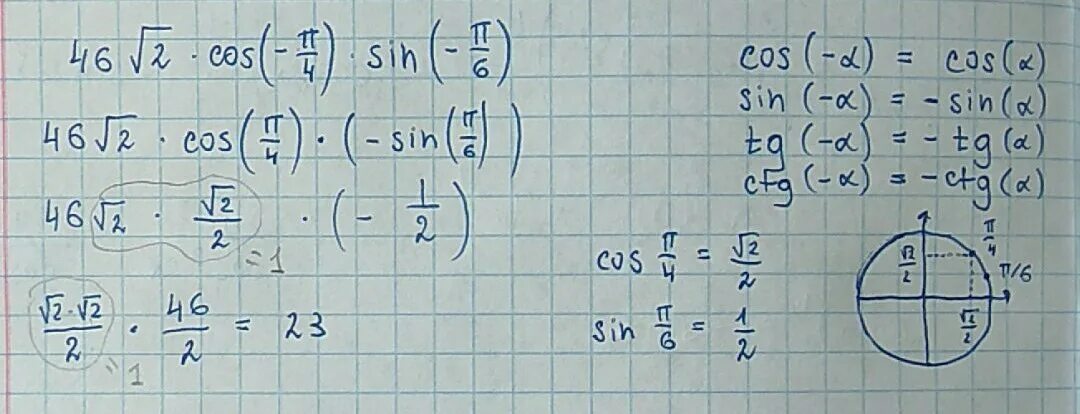 46 √2 · cos(-π/4) · sin(-π/6)
46 √2 · cos(π/4) · (-sin(π/6))
46 √2 · √2/2 · (- 1/2)
= 1
√2·√2/2 · 46/2 = 23
= 1
cos (-α) = cos(α)
sin (-α) = - sin(α)
tg (-α) = - tg(α)
ctg (-α) = -ctg(α)
cos π/4 = √2/2
sin π/6 = 1/2
π/4
√2/2
π/6
√2/2